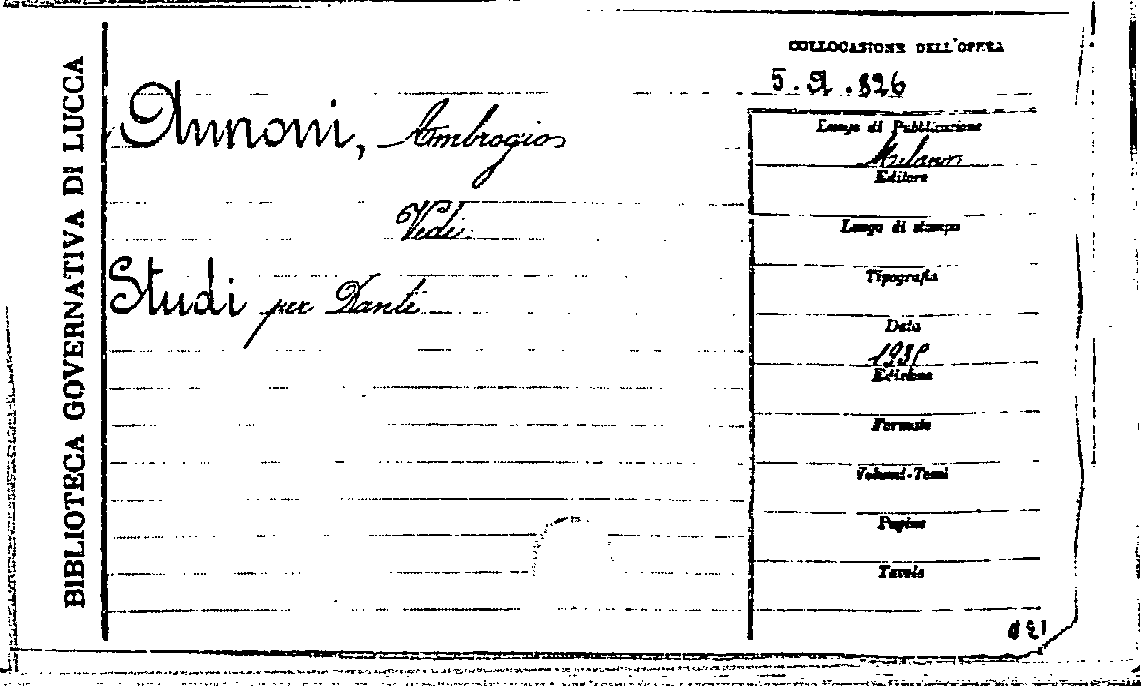 BIBLIOTECA GOVERNATIVA DI LUCCA
COLLOCAZIONE DELL'OPERA
Annoni, Ambrogio
Vedi
Studi per Dante
Luogo di Pubblicazione
Milano
Editore
Luogo di stampa
Tipografia
Data
Edizione
Formato
Volumi-Tomi
Pagine
Tavole